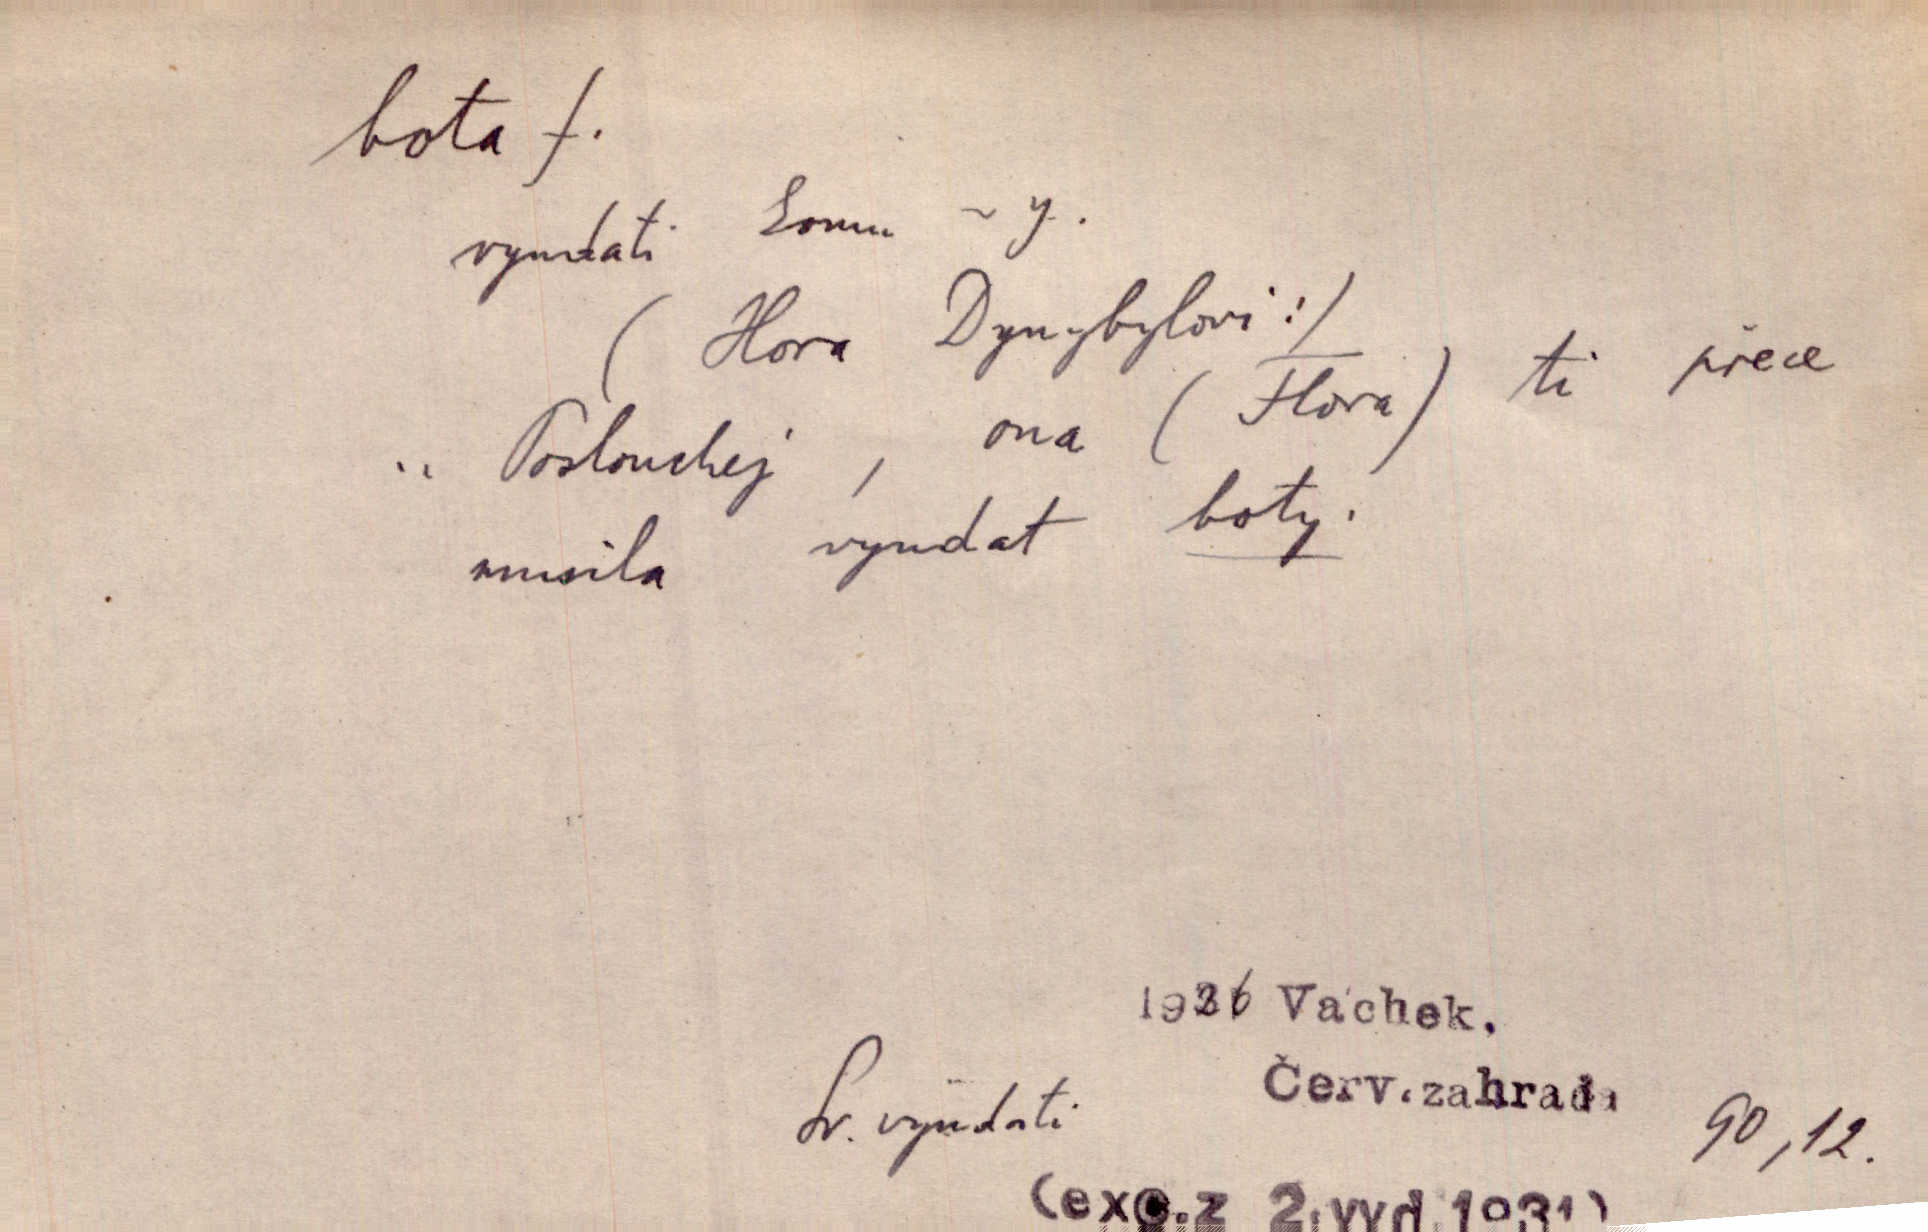 bota f.
vyndati komu ~ y.
( Hora Dynybylovi :)
„ Poslouchej , ona ( Flora ) ti přece
musila vyndat boty.
1926 Vachek.
Červ. zahrada
Sr. vyndati
90, 12.
(exc. z 2. vyd. 1931)